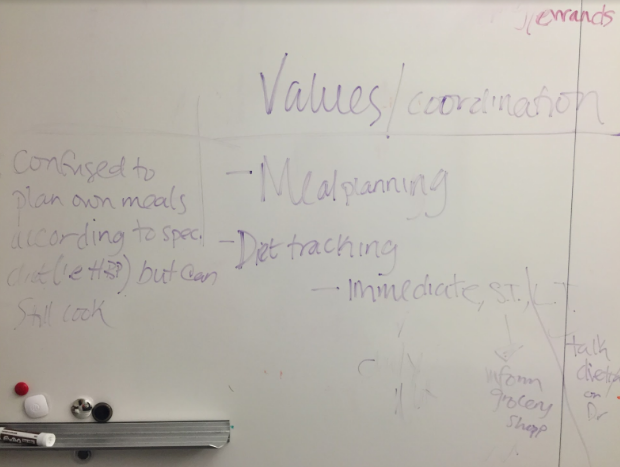 errands
Values/coordination
Confused to
plan own meals
according to spec.
diet ( ) but can
Still cook
- Mealplanning
- Diet tracking
- Immediate, S.T., L.T.
inform
grocery
shopp
talk
on
Dr